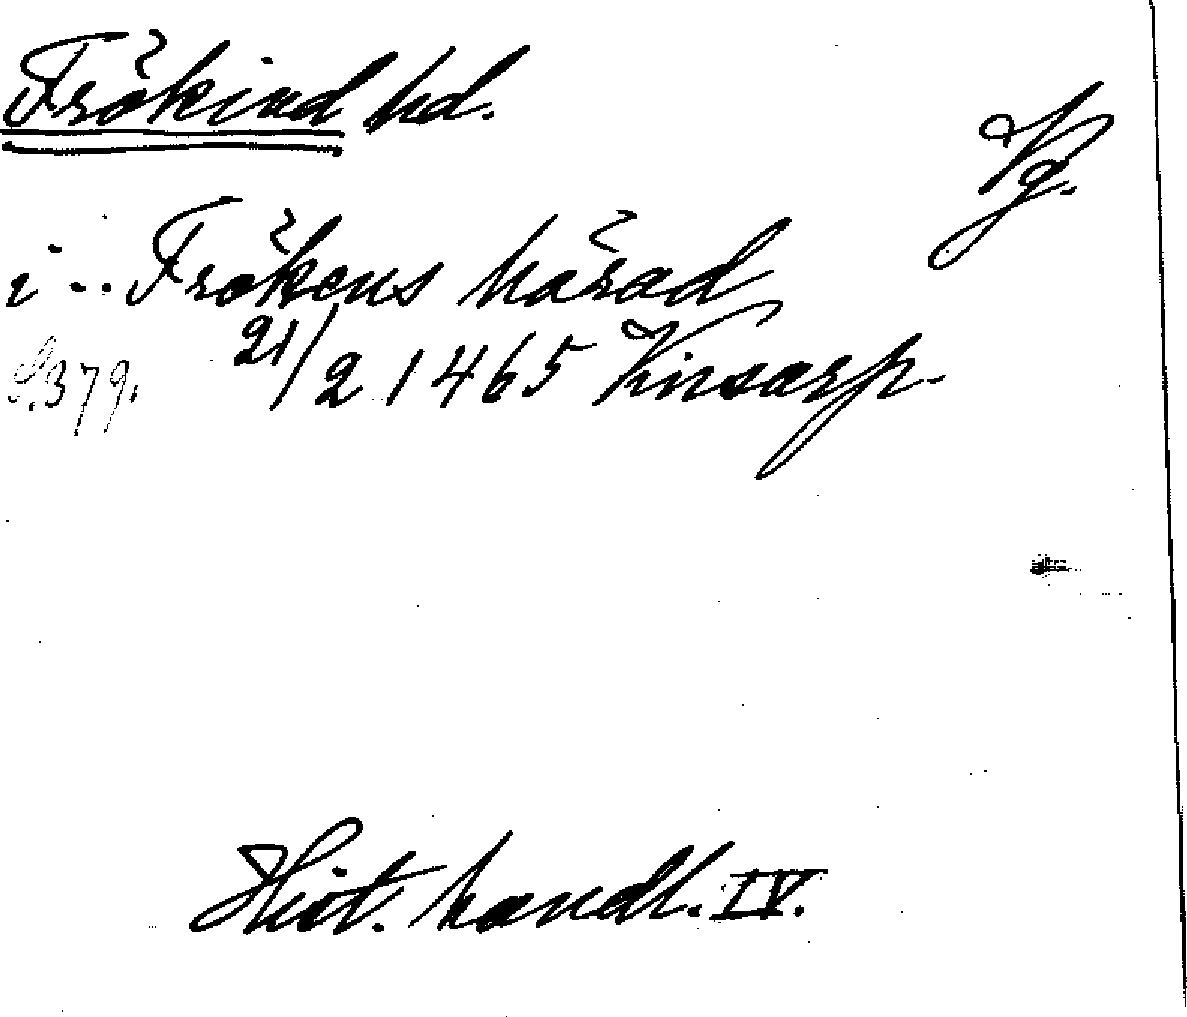 Frökind hd.
Vg.
i .. Frökens härad
S. 379. 21/2 1465 Kinsarp.
Hist. handl. IV.